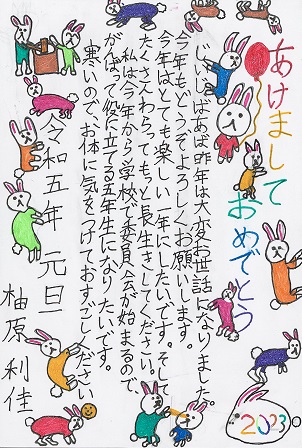 あけまして
おめでとう
じじ、ばあば昨年は大変お世話になりました。
今年もどうぞよろしくお願いします。
今年はとても楽しい一年にしたいです。そして
たくさんわらって、もっと長生きしてください。
私は今年から学校で委員会が始まるので、
がんばって役に立てる五年生になりたいです。
寒いので、お体に気をつけておすごしください
令和五年 元旦
柚原利佳
2023